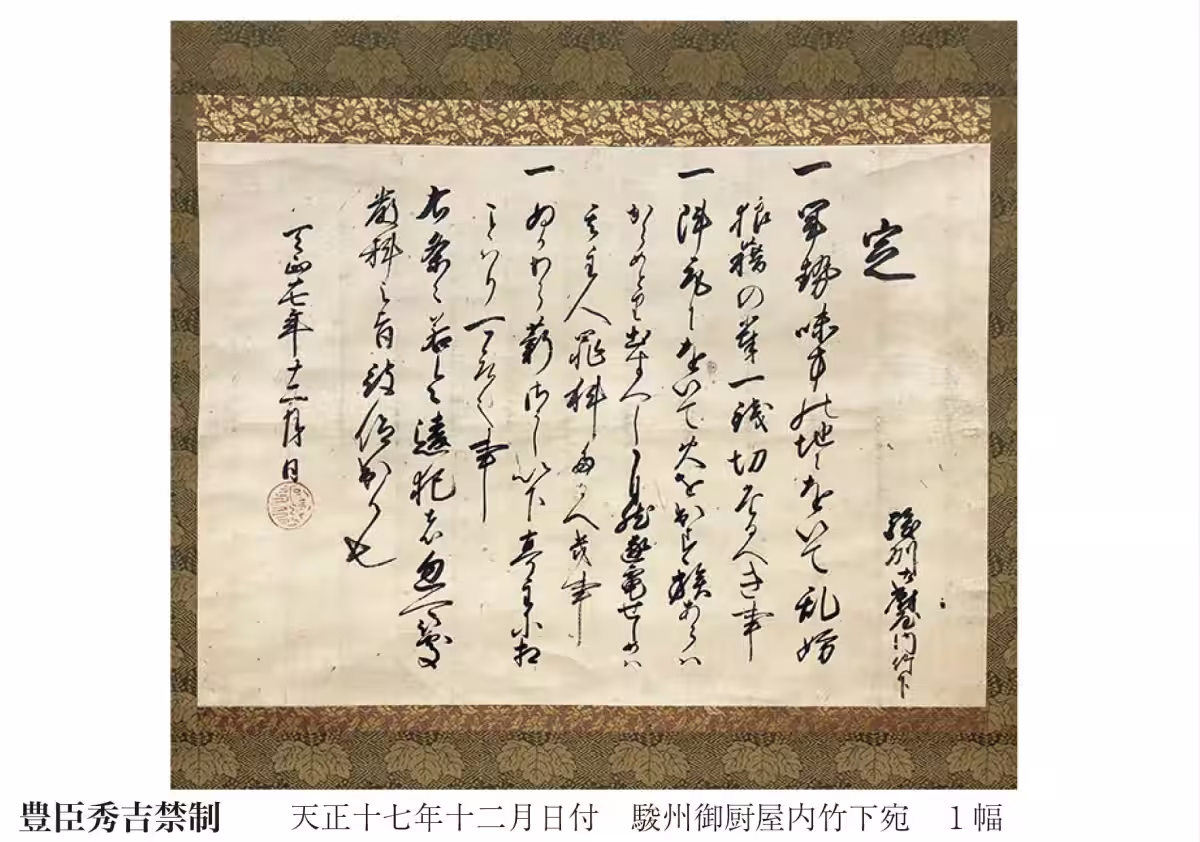 駿州御厨屋内竹下
定
一軍勢味方の地にをいて乱妨
狼藉の輩一銭切たるへき事
一陣取にをいて火を出す族あらハ
からめとり出すへし自然逐電せしめハ
其主人罪科たるへき事
一ぬかわら薪さうし以下亭主に相
ことハり可取之事
右条々若令違犯者忽可處
嚴科之旨被仰出候也
天正十七年十二月日
豊臣秀吉禁制 天正十七年十二月日付 駿州御厨屋内竹下宛 1幅